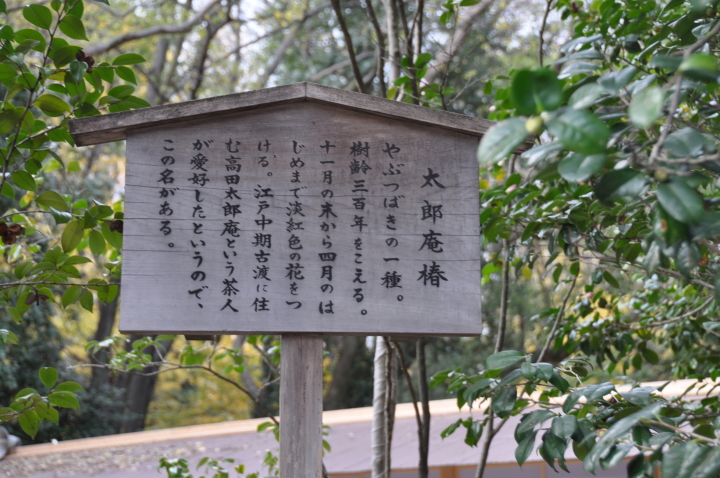 太郎庵椿
やぶつばきの一種。
樹齢三百年をこえる。
十一月の末から四月のは
じめまで淡紅色の花をつ
ける。江戸中期古渡に住
む高田太郎庵という茶人
が愛好したというので、
この名がある。